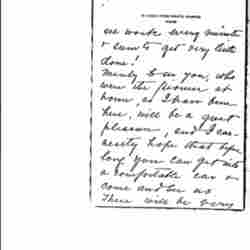 we work every minute
& seem to get very little
done!
to see you, who
were the pioneer at
home, as I have been
here, will be a great
pleasure, and I
hope that before
long you can get into
a comfortable car &
come and see us
There will be every